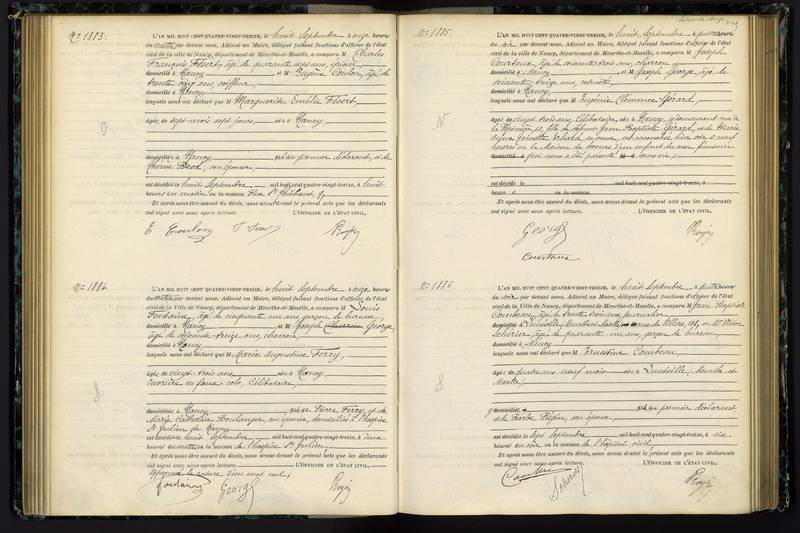 No 1883.
L'AN MIL HUIT CENT QUATRE-VINGT-TREIZE, le huit Septembre à onze heures
du matin par devant nous, Adjoint au Maire, délégué faisant fonctions d'officier de l'état
civil de la ville de Nancy, département de Meurthe-et-Moselle, a comparu M Charles
François Fésert, âgé de quarante sept ans, épicier
domicilié à Nancy et M Eugène Coulon, âgé de
trente cinq ans, coiffeur,
domicilié à Nancy
lesquels nous ont déclaré que M Marguerite Emélie Fésert
âgée de sept mois sept jours née à Nancy
domiciliée à Nancy fille du premier déclarant, et de
son épouse,
est décédée le huit Septembre mil huit cent quatre-vingt-treize, à huit
heures du matin en la maison rue St Thiébaut, 9,
Et après nous être assuré du décès, nous avons dressé le présent acte que les déclarants
ont signé avec nous après lecture. L'OFFICIER DE L'ÉTAT CIVIL,
E Coulon
No 1884.
L'AN MIL HUIT CENT QUATRE-VINGT-TREIZE, le huit Septembre à onze heures
du matin par devant nous, Adjoint au Maire, délégué faisant fonctions d'officier de l'état
civil de la ville de Nancy, département de Meurthe-et-Moselle, a comparu M Louis
Fontaine, âgé de cinquante un ans garçon de bureau,
domicilié à Nancy et M Joseph George,
âgé de soixante treize ans, charron
domicilié à Nancy
lesquels nous ont déclaré que M Maria Augustine Ferry,
âgée de vingt trois ans née à Nancy
ouvrière en faux cols, Célibataire,
domiciliée à Nancy fille de Pierre Ferry, et de
Marie Catherine Boulanger, son épouse, domiciliés à l'hospice
St Julien de Nancy
est décédée le huit Septembre mil huit cent quatre-vingt-treize, à deux
heures du matin en la maison de l'hospice St Julien,
Et après nous être assuré du décès, nous avons dressé le présent acte que les déclarants
ont signé avec nous après lecture. L'OFFICIER DE L'ÉTAT CIVIL,
Approuvé la rature d'un mot nul
Fontaine George
No 1885.
L'AN MIL HUIT CENT QUATRE-VINGT-TREIZE, le huit Septembre à quatre heures
du soir par devant nous, Adjoint au Maire, délégué faisant fonctions d'officier de l'état
civil de la ville de Nancy, département de Meurthe-et-Moselle, a comparu M Joseph
Courtaux, âgé de soixante trois ans, charron
domicilié à Nancy et M Joseph George, âgé de
soixante treize ans, retraité
domicilié à Nancy
lesquels nous ont déclaré que M Eugénie Clémence Gérard,
âgée de vingt trois ans, Célibataire, née à Nancy, y demeurant rue de
la Pépinière, 10, fille de défunt Jean Baptiste Gérard, et de Marie
sa veuve, est accouchée hier soir à neuf
heures en la Maison de Secours d'un enfant du sexe féminin
qui nous a été présenté sans vie
est décédé le mil huit cent quatre-vingt-treize, à
heures en la maison
Et après nous être assuré du décès, nous avons dressé le présent acte que les déclarants
ont signé avec nous après lecture. L'OFFICIER DE L'ÉTAT CIVIL,
George
Courtaux
No 1886.
L'AN MIL HUIT CENT QUATRE-VINGT-TREIZE, le huit Septembre à quatre heures
du soir par devant nous, Adjoint au Maire, délégué faisant fonctions d'officier de l'état
civil de la ville de Nancy, département de Meurthe-et-Moselle, a comparu M Jean Baptiste
Combeau, âgé de trente trois ans journalier
domicilié à Lunéville, Meurthe et Moselle, rue de Villers, 118, et M Victor
âgé de quarante un ans, garçon de bureau,
domicilié à Nancy
lesquels nous ont déclaré que M Ernestine Combeau,
âgée de quatre ans neuf mois née à Lunéville, Meurthe et
Moselle,
y domiciliée fille du premier déclarant
et de son épouse,
est décédée le sept Septembre mil huit cent quatre-vingt-treize, à six
heures du soir en la maison de l'hôpital civil,
Et après nous être assuré du décès, nous avons dressé le présent acte que les déclarants
ont signé avec nous après lecture. L'OFFICIER DE L'ÉTAT CIVIL,